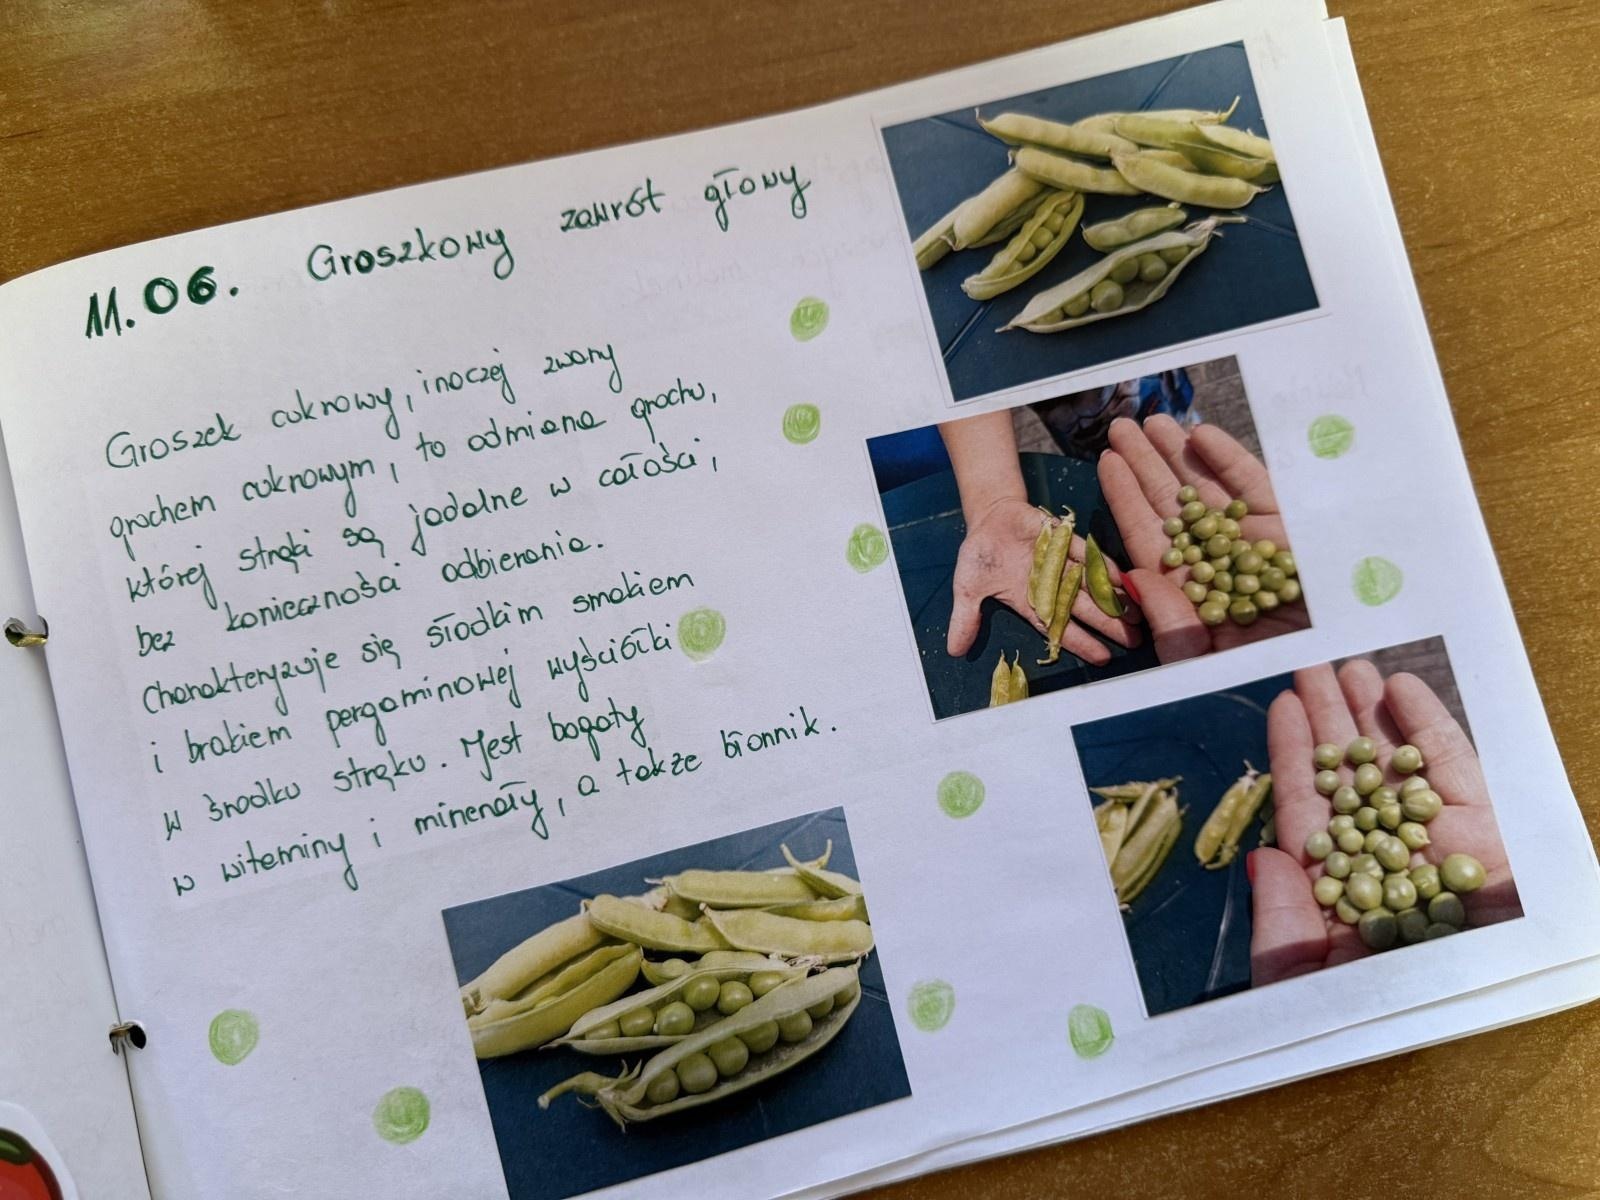 11.06. Groszkowy zawrót głowy
Groszek cukrowy, inaczej zwany
grochem cukrowym, to odmiana grochu,
której strąki są jadalne w całości,
bez konieczności odbierania.
Charakteryzuje się słodkim smakiem
i brakiem pergaminowej wyściółki
w środku strąku. Jest bogaty
w witaminy i minerały, a także błonnik.